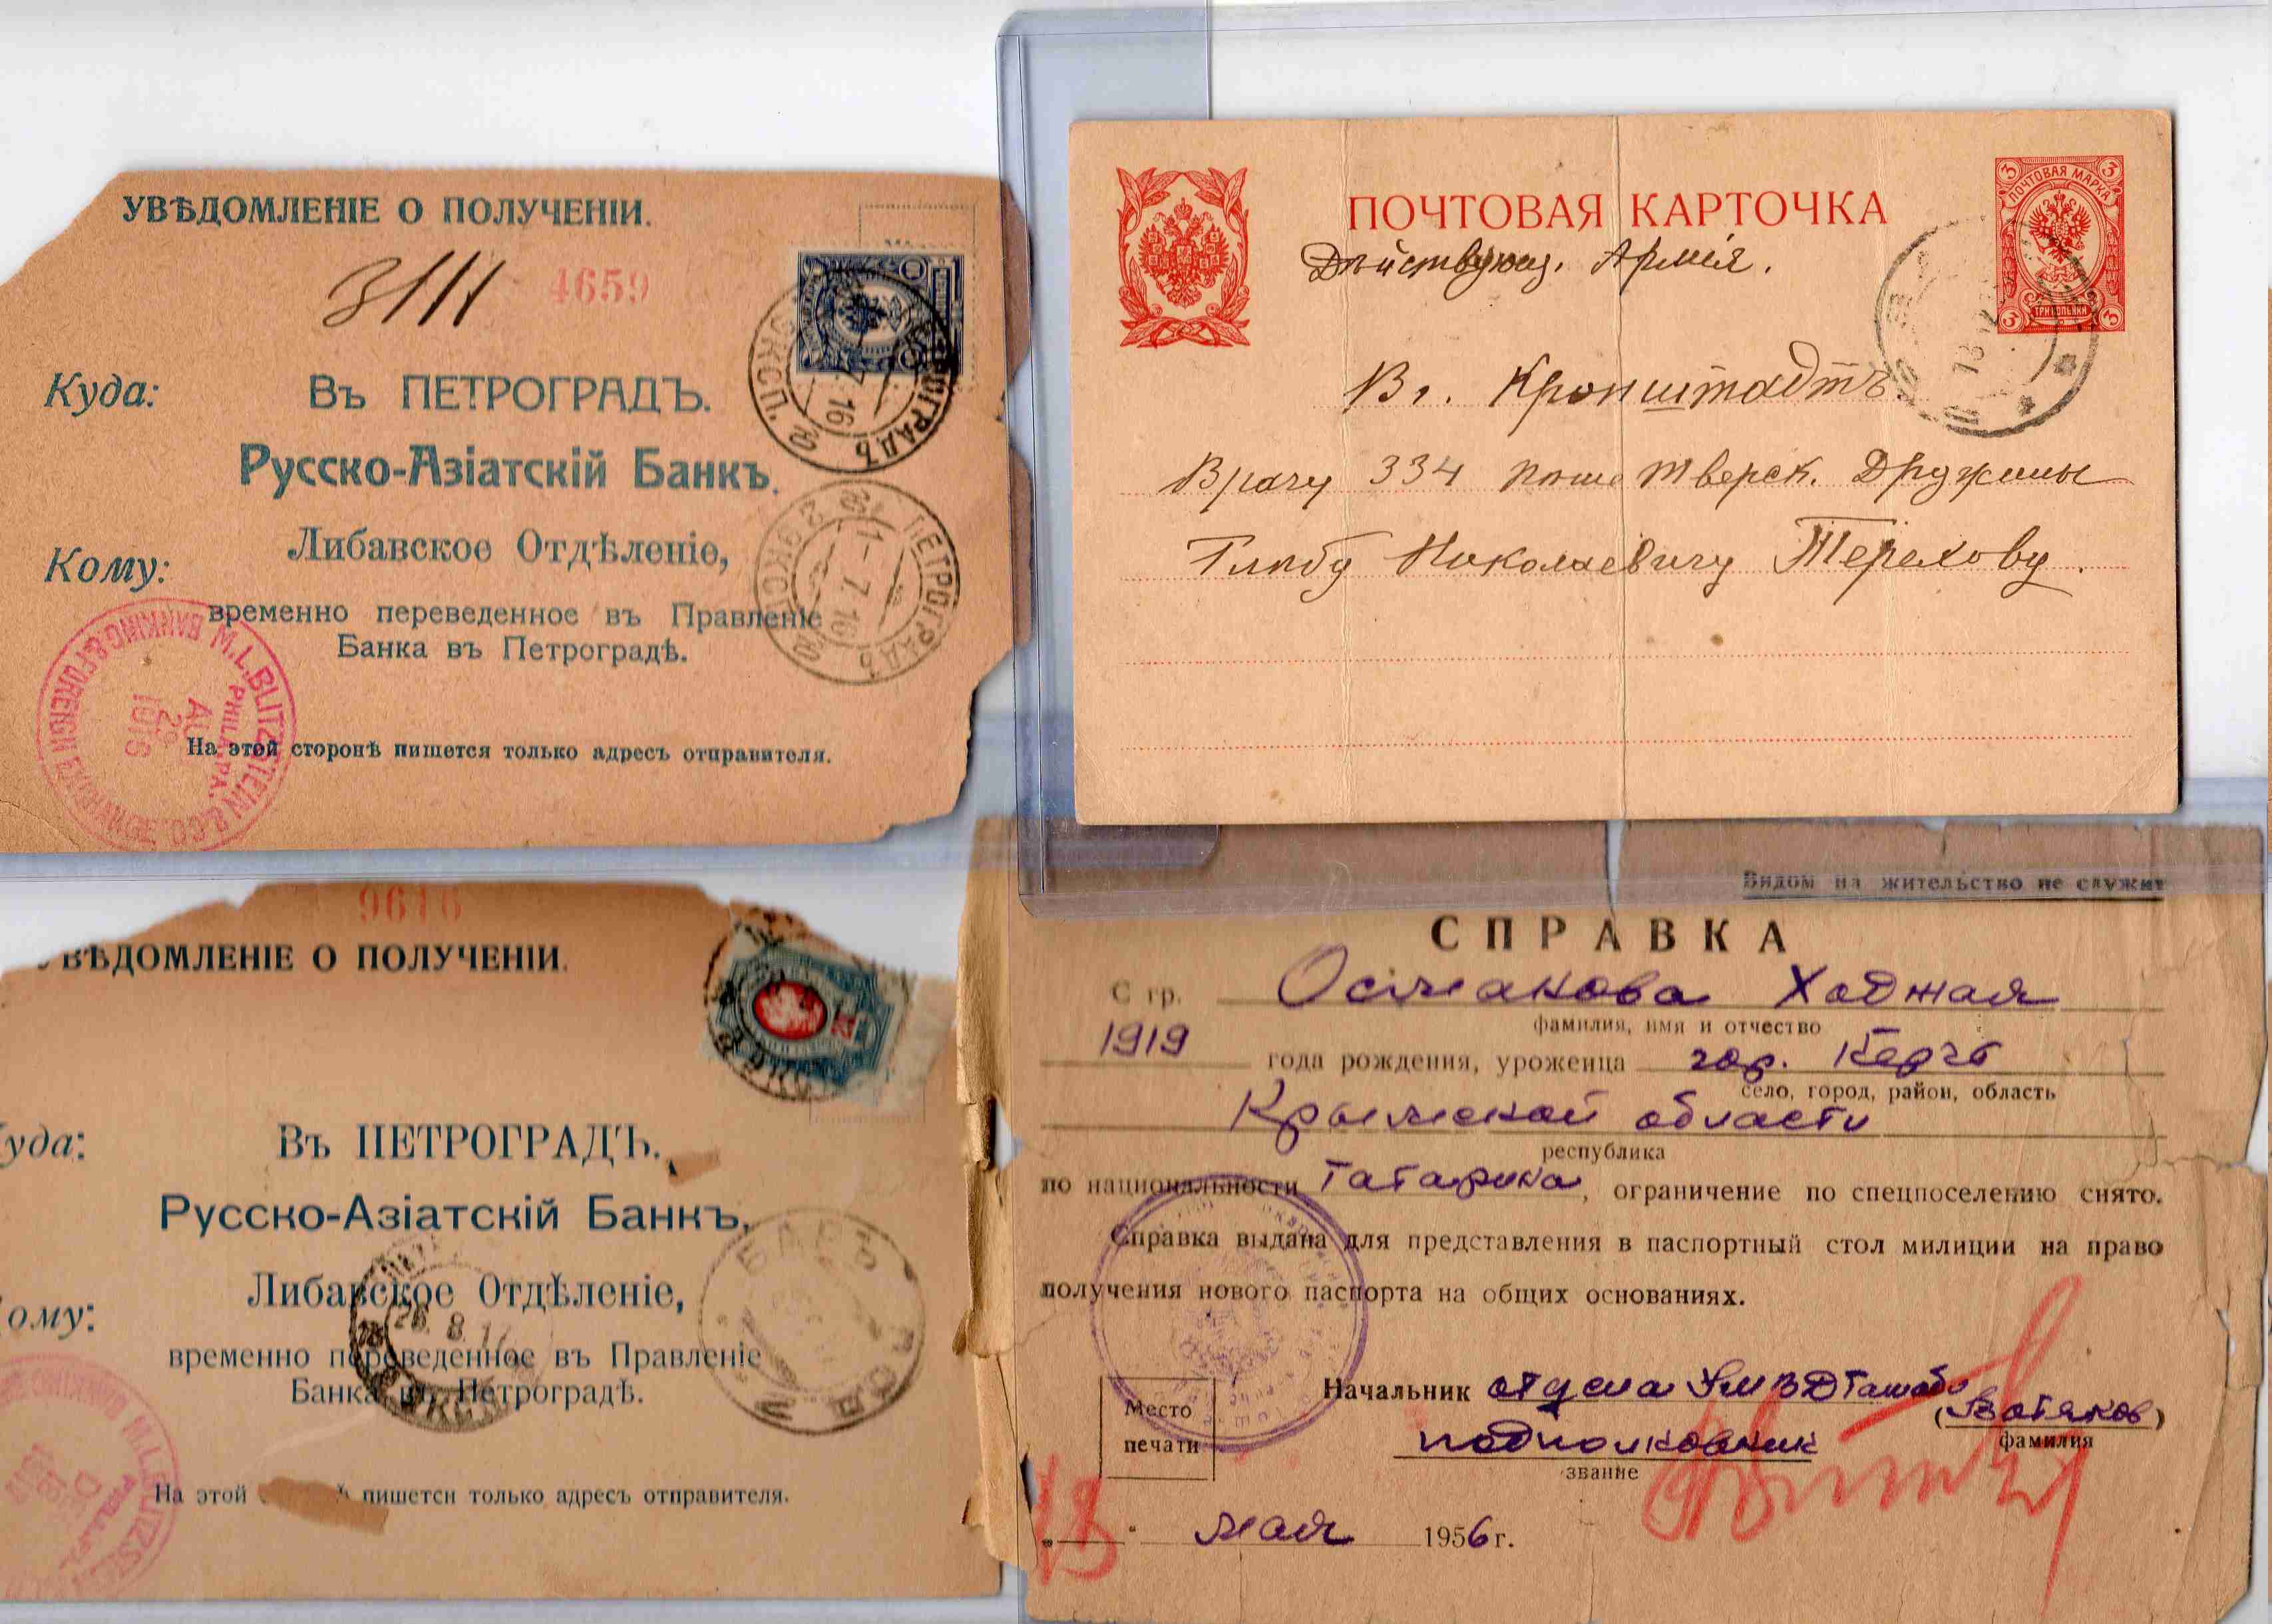 УВѢДОМЛЕНІЕ О ПОЛУЧЕНІИ.
4659
Куда:
Въ ПЕТРОГРАДЪ.
Русско-Азіатскій Банкъ.
Кому:
Либавское Отдѣленіе,
временно переведенное въ Правленіе
Банка въ Петроградѣ.
На этой сторонѣ пишется только адресъ отправителя.
ПЕТРОГРАДЪ
7.16
ПЕТРОГРАДЪ
2 ЭКСП.
1-7.16
M.L.BLITZSTEIN & CO.
BANKING & FOREIGN EXCHANGE
PHILA. PA.
1916
ПОЧТОВАЯ КАРТОЧКА
ПОЧТОВАЯ МАРКА
3 3
ТРИ КОПѢЙКИ
3 3
Дѣйствующ. Армія.
В г. Кронштадтъ
Врачу 334 пѣше Тверск. Дружины
Глѣбу Николаевичу Терехову.
9616
ВѢДОМЛЕНІЕ О ПОЛУЧЕНІИ.
уда:
Въ ПЕТРОГРАДЪ.
Русско-Азіатскій Банкъ,
ому:
Либавское Отдѣленіе,
временно переведенное въ Правленіе
Банка въ Петроградѣ.
На этой пишется только адресъ отправителя.
26.8.17
M.L.BLITZSTEIN
BANKING
PHILA.
Видом на жительство не служит
СПРАВКА
С гр. Османова Ходжая
фамилия, имя и отчество
1919 года рождения, уроженца гор. Керчь
село, город, район, область
Крымской области
республика
по национальности Татарка, ограничение по спецпоселению снято.
Справка выдана для представления в паспортный стол милиции на право
получения нового паспорта на общих основаниях.
Место
печати
Начальник отдела УМВД Ташобл
подполковник
звание
(Вотяков)
фамилия
18
" " мая 1956 г.